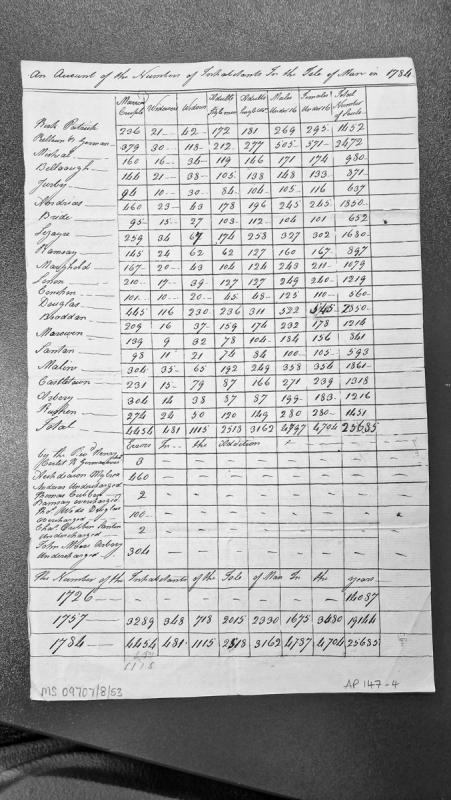 An Account of the Number of Inhabitants In the Isle of Man in 1784
Married Couple Widowers Widows Adults Males Under 16 Females Under 16 Total Number of Souls
Kirk Patrick 236 21 42 172 181 269 295 1452
German 379 30 118 212 277 505 571 2472
Michael 160 16 34 119 146 171 174 980
Ballaugh 144 21 38 105 138 148 133 871
Jurby 94 10 30 84 104 105 116 637
Andreas 460 23 43 178 196 245 245 1850
Bride 95 15 27 103 112 104 101 652
Lezayre 259 34 67 174 258 327 302 1680
Ramsay 145 24 62 62 127 160 167 897
Maughold 167 20 43 104 124 243 211 1079
Lonon 210 17 39 127 127 249 240 1219
Conchan 101 10 20 45 48 125 110 560
Douglas 445 116 230 236 311 522 545 2850
Braddan 209 16 37 159 174 232 178 1214
Marown 139 9 32 78 104 184 156 841
Santan 98 11 21 74 84 100 105 593
Malew 304 35 65 192 249 358 354 1861
Castletown 231 15 79 87 166 271 239 1318
Arbory 304 14 38 87 87 199 183 1216
Rushen 274 24 50 120 149 280 280 1451
Total 4454 481 1115 2518 3162 4797 4704 25685
Errors In the Addition
by the Revd Henry
8
460
Andreas Undercharged
2
Ramsay overcharged
Douglas
overcharged 100
Santan
Undercharged 2
John Arbory
Undercharged 304
The Number of the Inhabitants of the Isle of Man In the years
1726 14087
1757 3289 348 718 2015 2330 1675 3480 19144
1784 4454 481 1115 2518 3162 4797 4704 25685
1115
MS 09707/8/53
AP 147-4